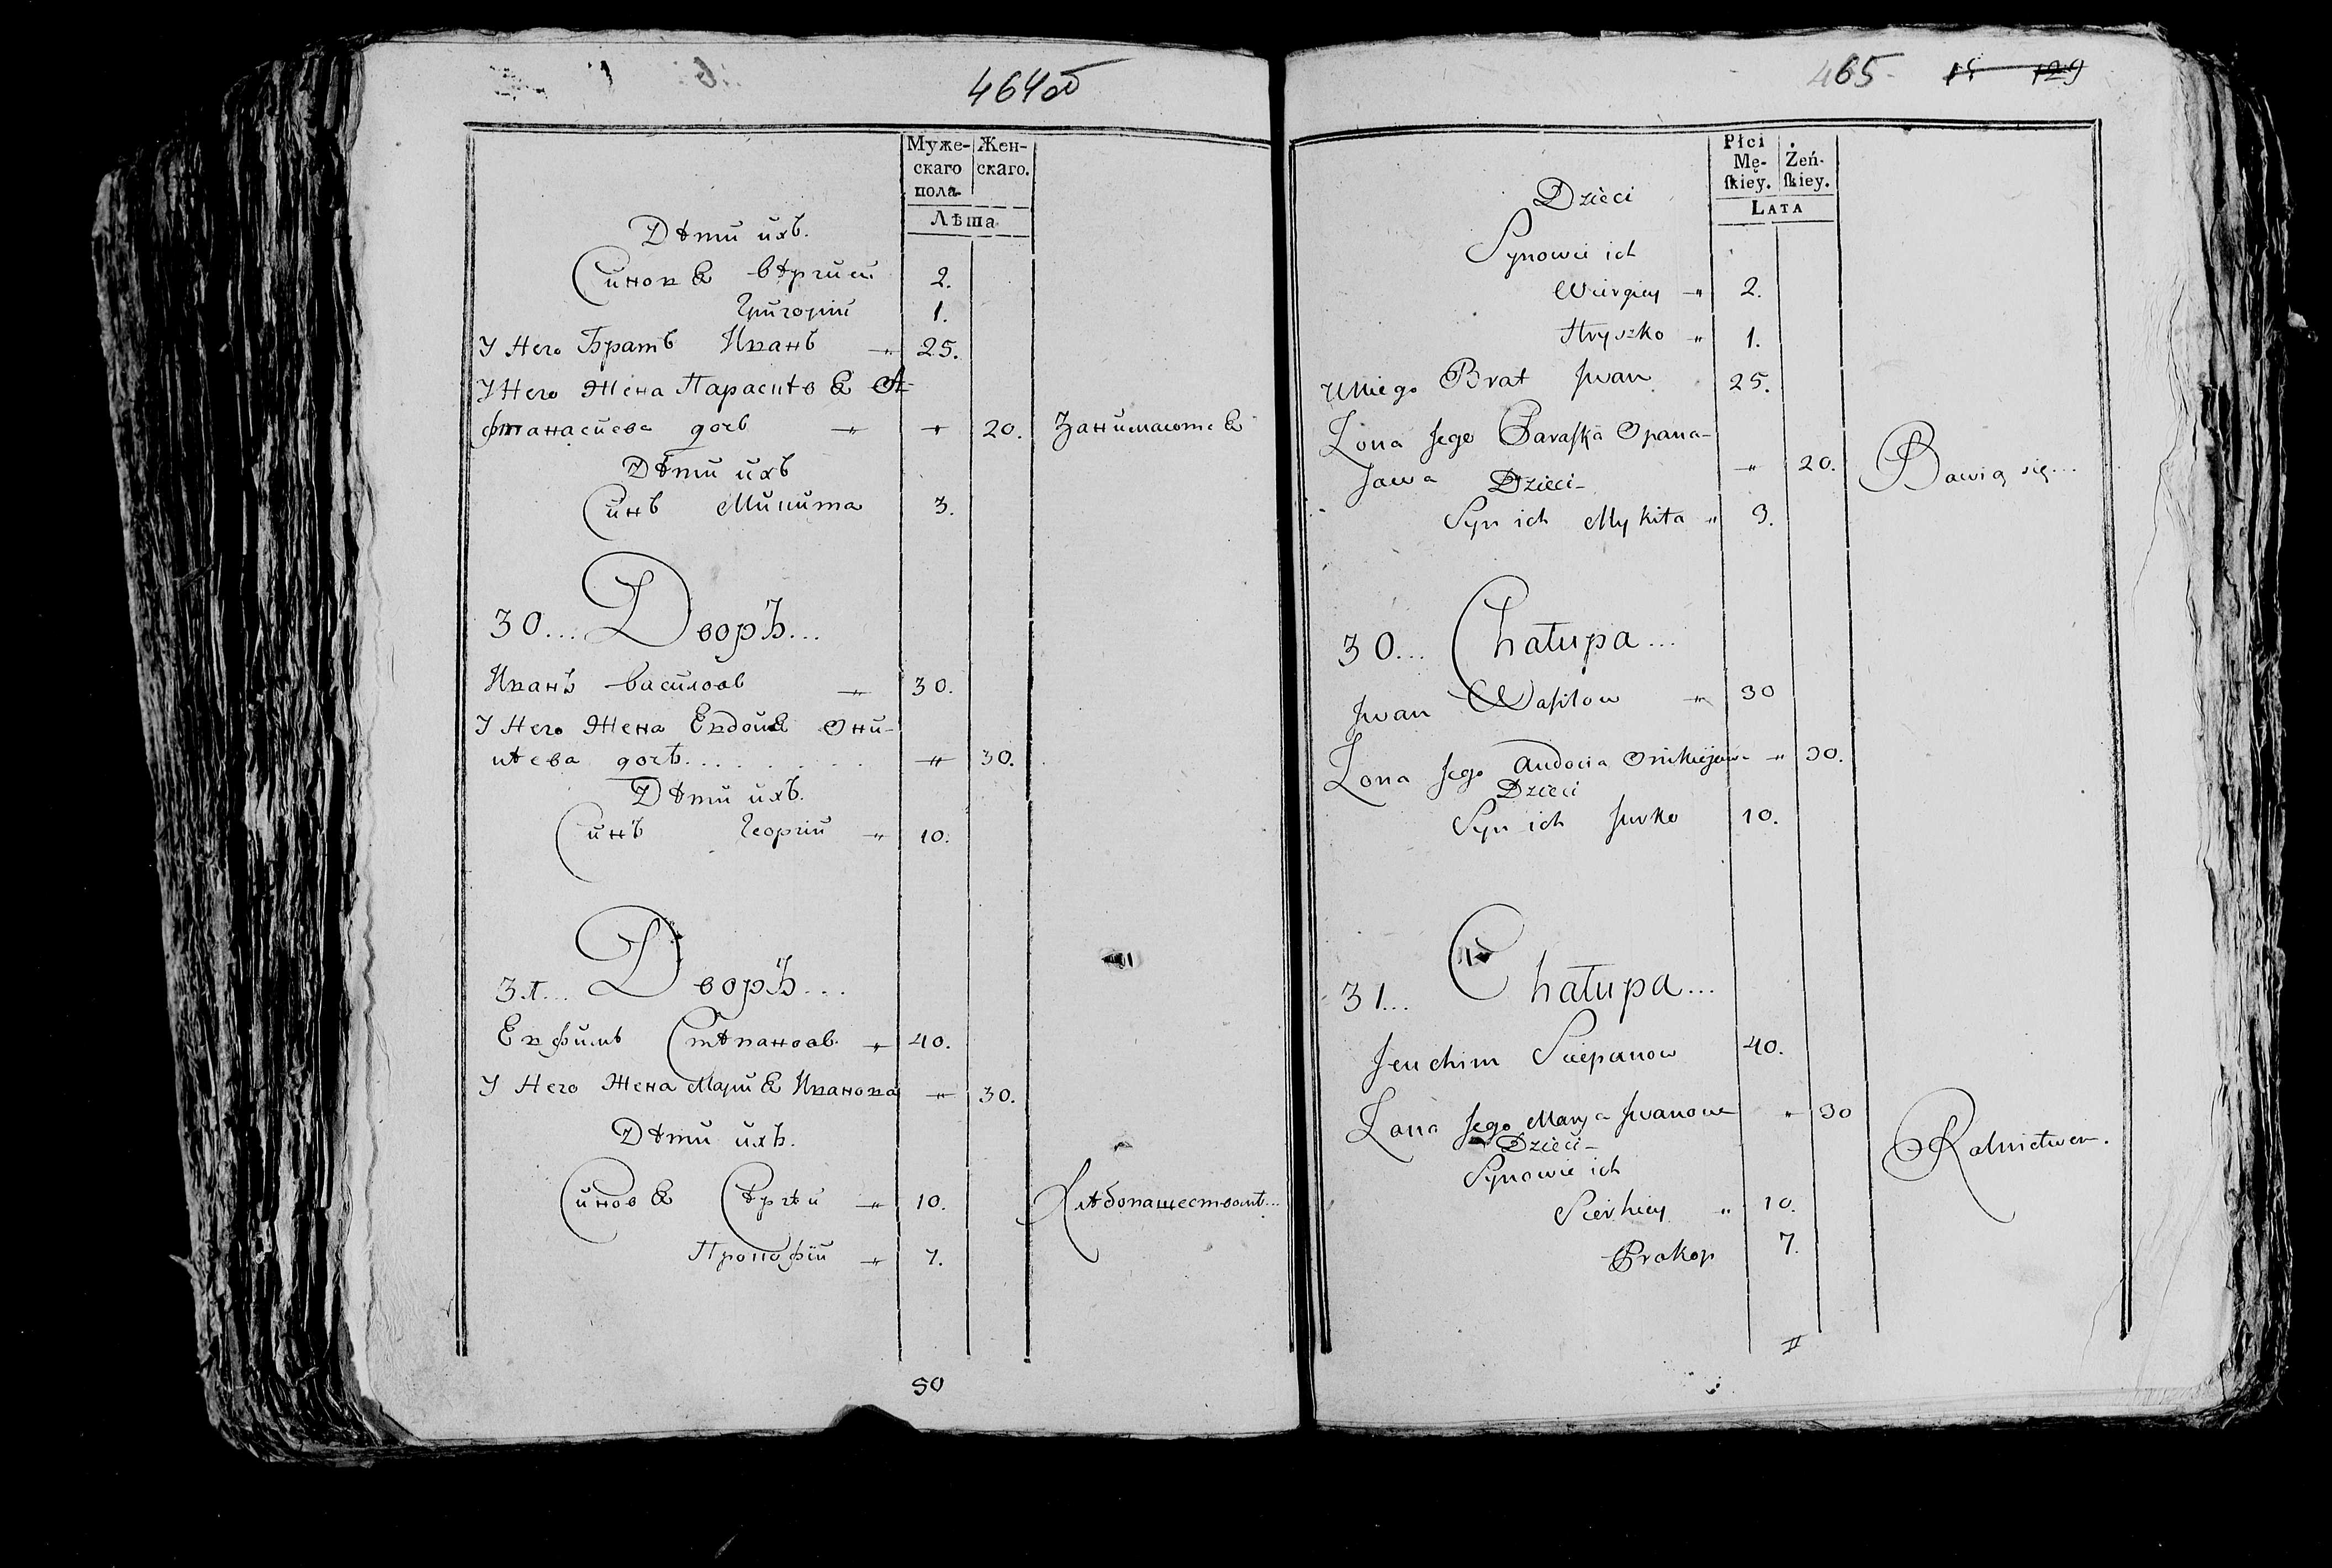 464об
Муже-
скаго
пола.
Жен-
скаго.
Лѣта.
Дѣти ихъ.
Синовя Вѣргий 2.
Григорий 1.
У Него Братъ Иванъ 25.
У Него Жена Парасковя А-
фтанасиева дочь 20. Занимаются
Дѣти ихъ
Синъ Микита 3.
30... Дворъ...
Иванъ Василовъ 30.
У Него Жена Евдокия Они-
кѣева дочь 30.
Дѣти ихъ.
Синъ Георгий 10.
31... Дворъ...
Евфимъ Стѣпановъ 40.
У Него Жена Мария Иванова 30.
Дѣти ихъ.
Синовя Сѣргѣй 10. Хлѣбопашествомъ...
Прокофий 7.
50
465
129
Płci
Mę-
ſkiey.
Żeń-
ſkiey.
LATA
Dzieci
Synowie ich
Wiergiey 2.
Hryszko 1.
U Niego Brat Jwan 25.
Zona Jego Paraſka Opana-
sowa 20. Bawią się...
Dzieci
Syn ich Mykita 3.
30... Chałupa...
Jwan Waſilow 30
Zona Jego Audocia Onikiejowa 30.
Dzieci
Syn ich Jurko 10.
31... Chałupa...
Jeuchim Sciepanow 40.
Zona Jego Marya Jwanowa 30
Dzieci
Synowie ich Rolnictwem.
Sierhiey 10.
Prokop 7.